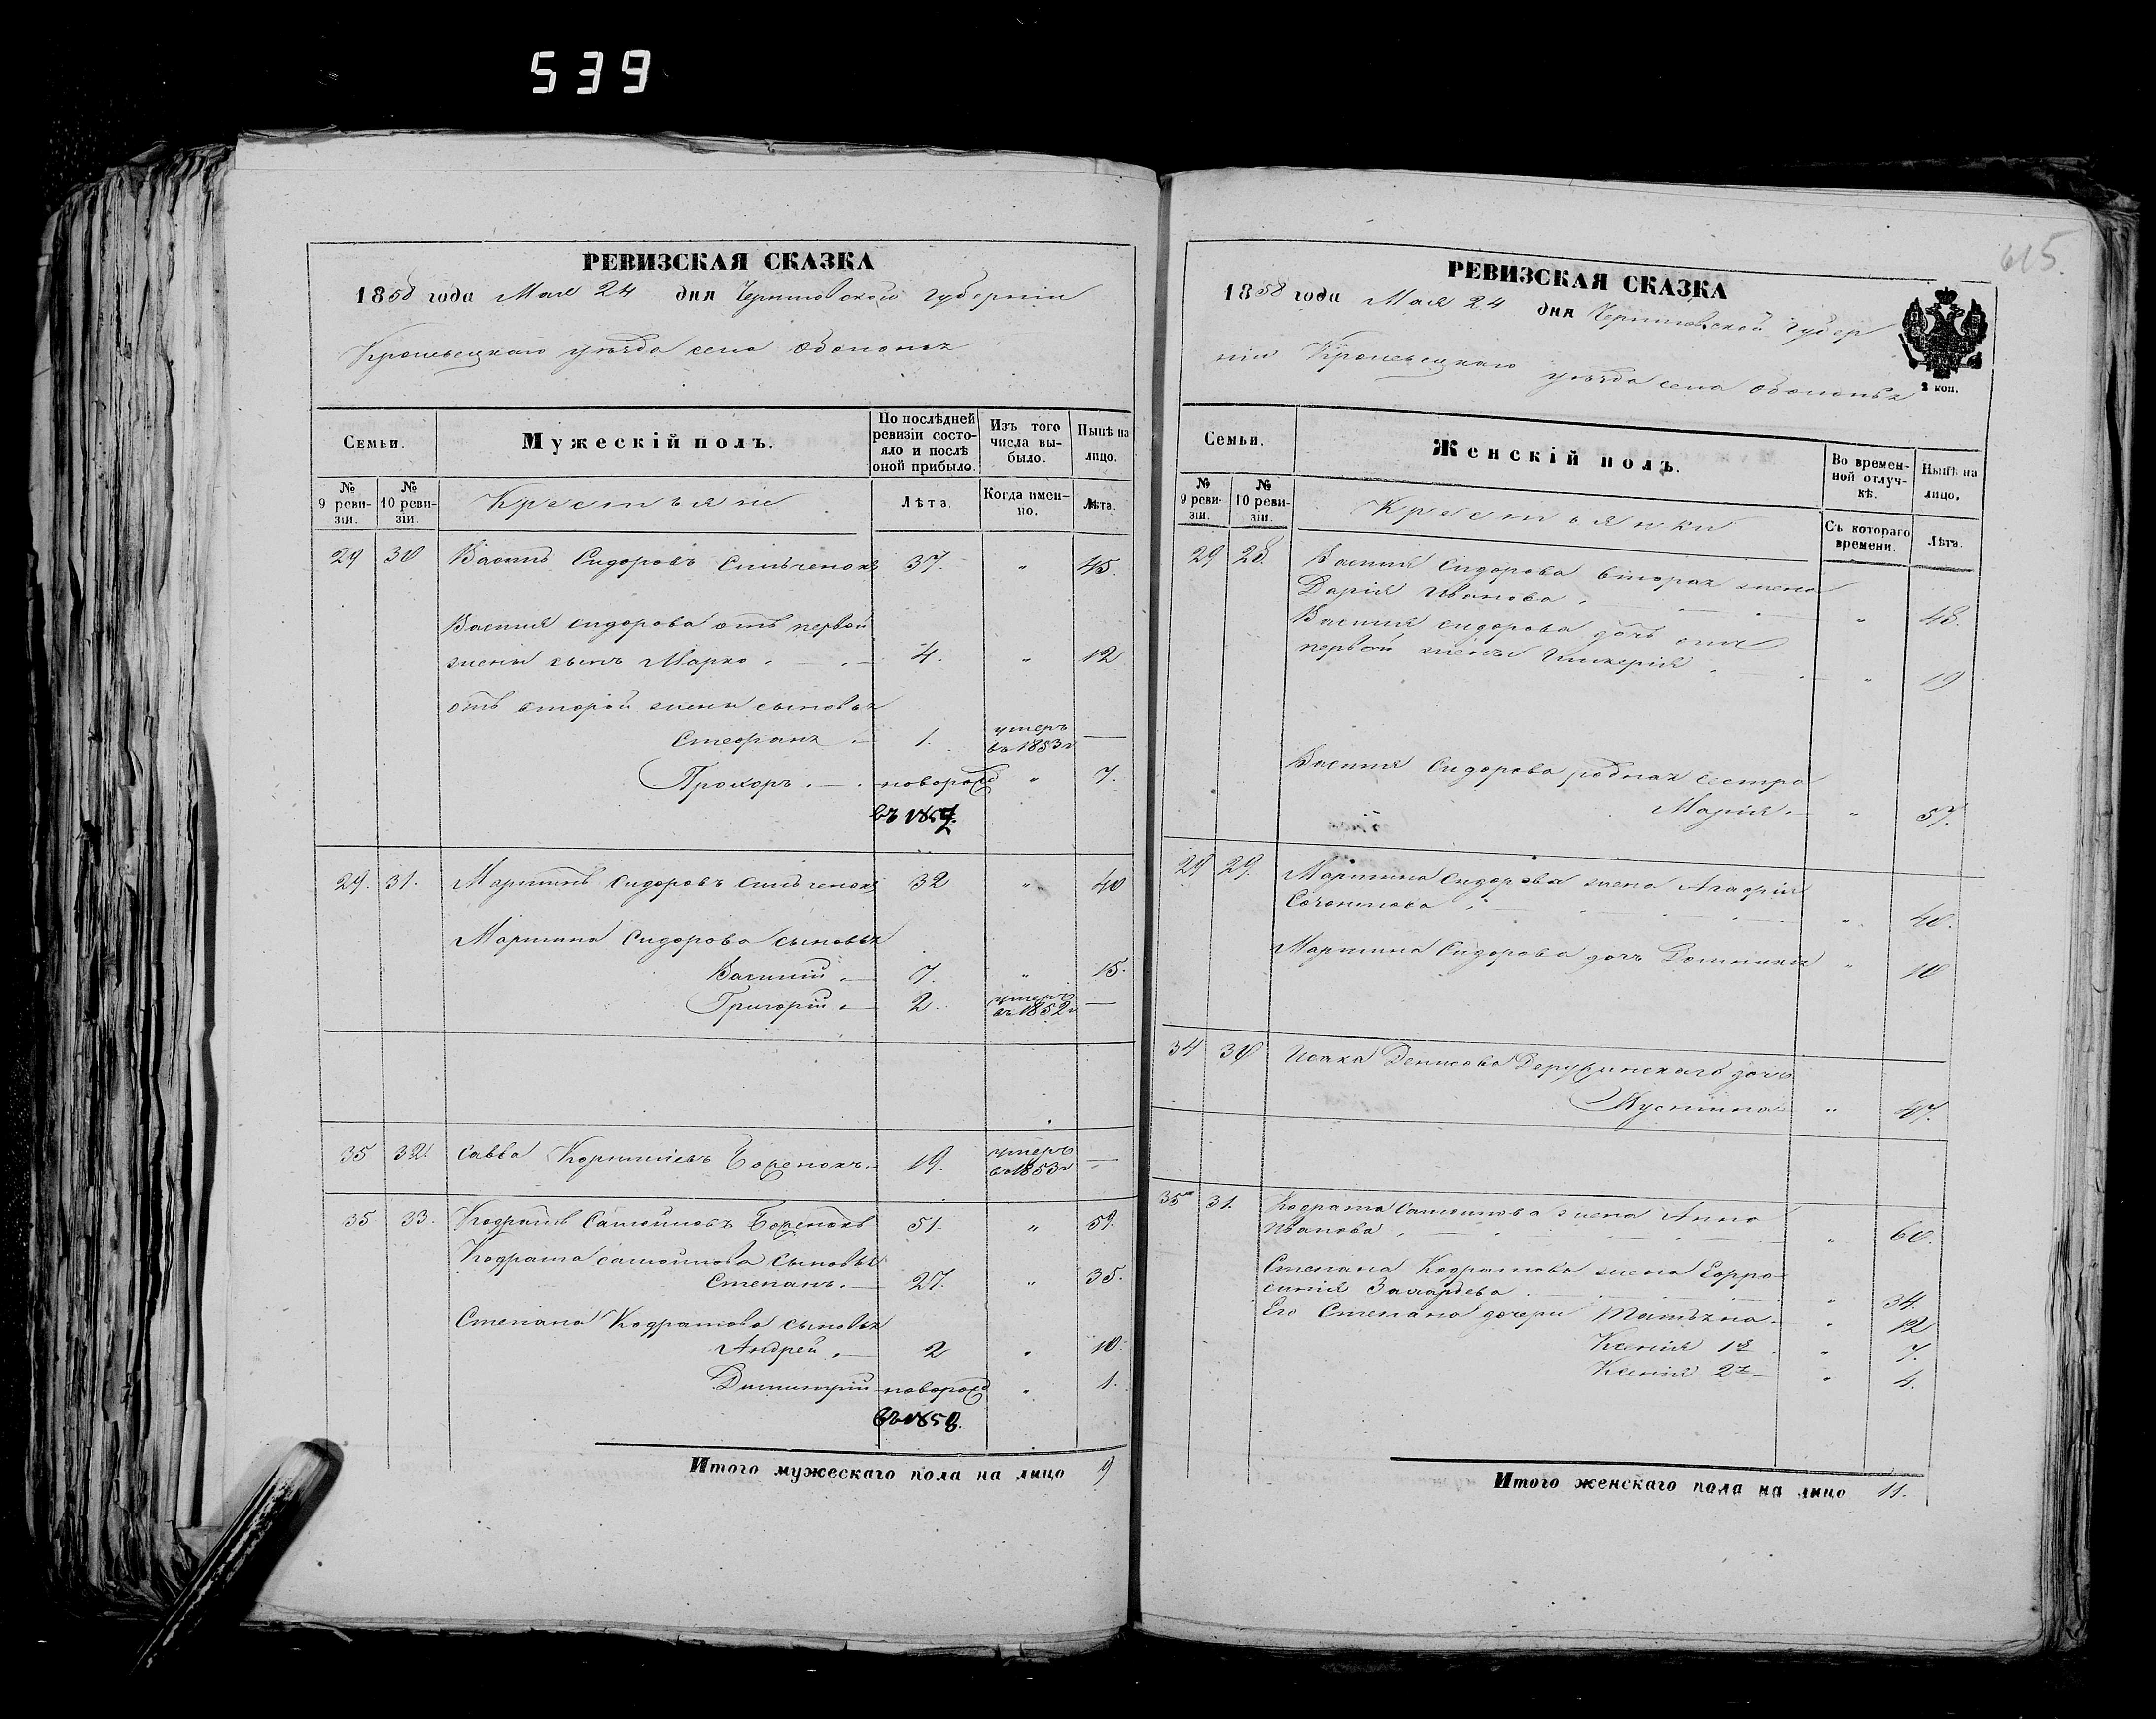 539
РЕВИЗСКАЯ СКАЗКА
1858 года Мая 24 дня Черниговской губерніи
Кролевецкаго уѣзда села Оболонья
Семьи.
Мужескій полъ.
По послѣдней ревизіи состояло и послѣ оной прибыло.
Изъ того числа выбыло.
Нынѣ на лицо.
№ 9 ревизіи.
№ 10 ревизіи.
Крестьяне
Лѣта.
Когда именно.
Лѣта.
29 30 Василь Сидоровъ 37. " 45.
Василія Сидорова отъ первой
жены сынъ Марко 4. " 12
отъ второй жены сыновья
Стефанъ 1. умеръ въ 1853 г —
Прохоръ новорожд " 7.
въ 1851.
29. 31. Мартинъ Сидоровъ 32 " 40
Мартина Сидорова сыновья
Василій 7. " 15.
Григорій 2. умеръ въ 1852 г —
35 32. Савва Корниліевъ 19. умеръ въ 1853 г —
35 33. Кодратъ Самойловъ 51. " 59.
Кодрата Самойлова сыновья
Степанъ 27. " 35.
Степана Кодратова сыновья
Андрей 2 " 10.
Димитрій новорожд " 1.
въ 1858.
Итого мужескаго пола на лицо 9
615.
РЕВИЗСКАЯ СКАЗКА
1858 года Мая 24 дня Черниговской губер
ніи Кролевецкаго уѣзда села Оболонья
2 коп.
Семьи.
Женскій полъ.
Во временной отлучкѣ.
Нынѣ на лицо.
№ 9 ревизіи.
№ 10 ревизіи.
Крестьянки
Съ котораго времени.
Лѣта.
29 28. Василія Сидорова вторая жена
Дарія Иванова " 48.
Василія Сидорова дочь отъ
первой жены Гликерія " 19
Василія Сидорова родная сестра
Марія " 57.
29 29. Мартина Сидорова жена Агафія
" 40.
Мартина Сидорова дочь Домникія " 10
34 30 Исака Денисова дочь
Иустина " 47.
35 31. Кодрата Самойлова жена Анна
Иванова " 60.
Степана Кодратова жена Евфро-
синія Захарьева " 34.
Его Степана дочери Татьяна " 12
Ксенія 1я " 7.
Ксенія 2я " 4.
Итого женскаго пола на лицо 11.